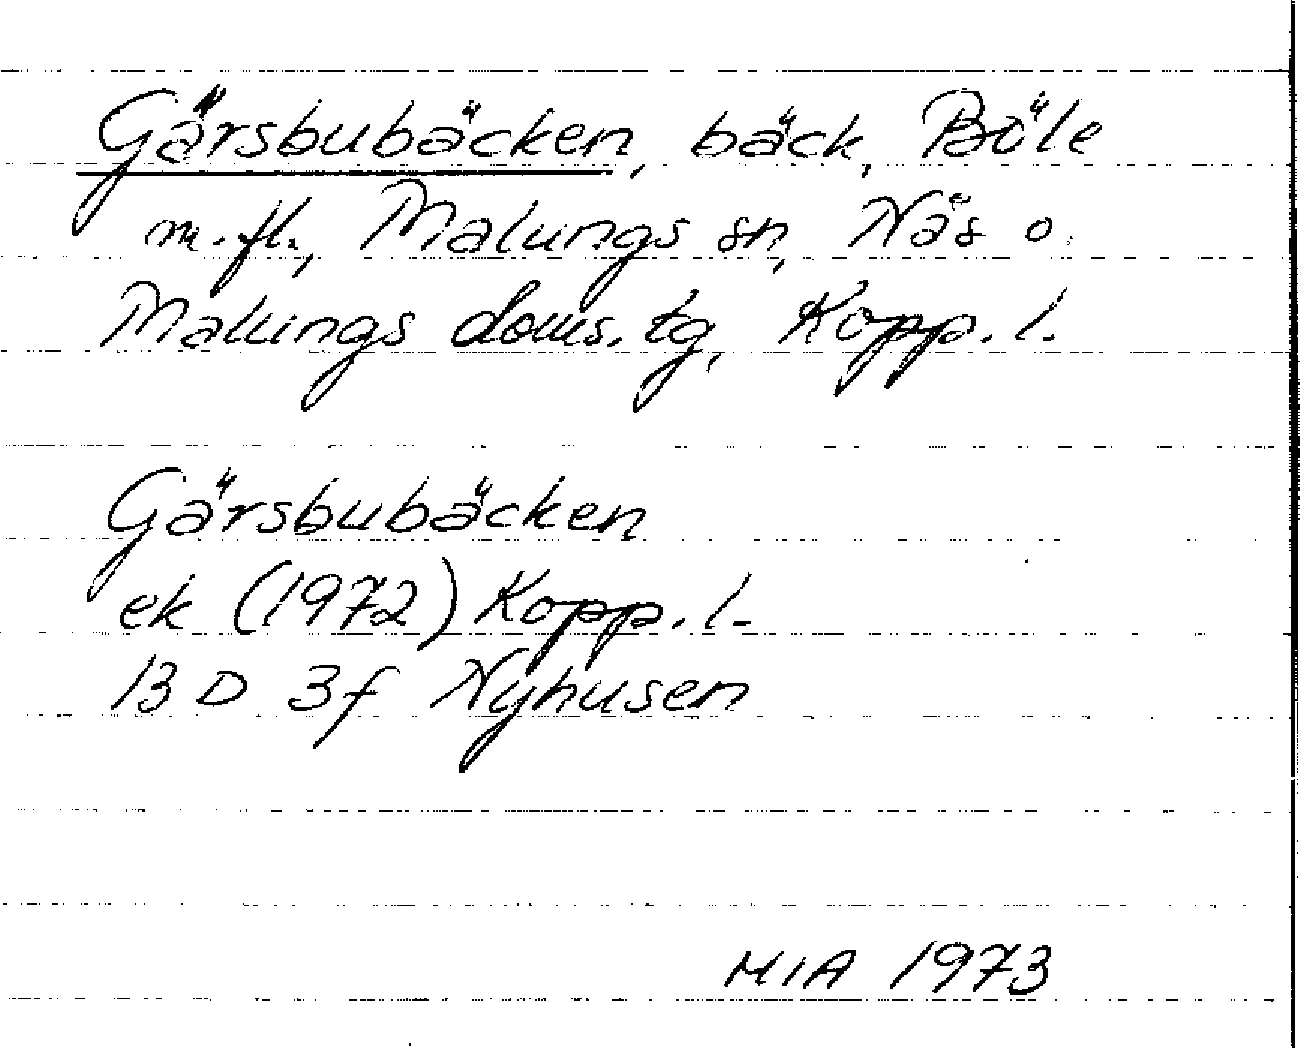 Gärsbubäcken, bäck, Böle
m.fl., Malungs sn, Näs o.
Malungs doms. tg, Kopp. l.
Gärsbubäcken
ek (1972) Kopp. l.
13 D 3f Nyhusen
MIA 1973